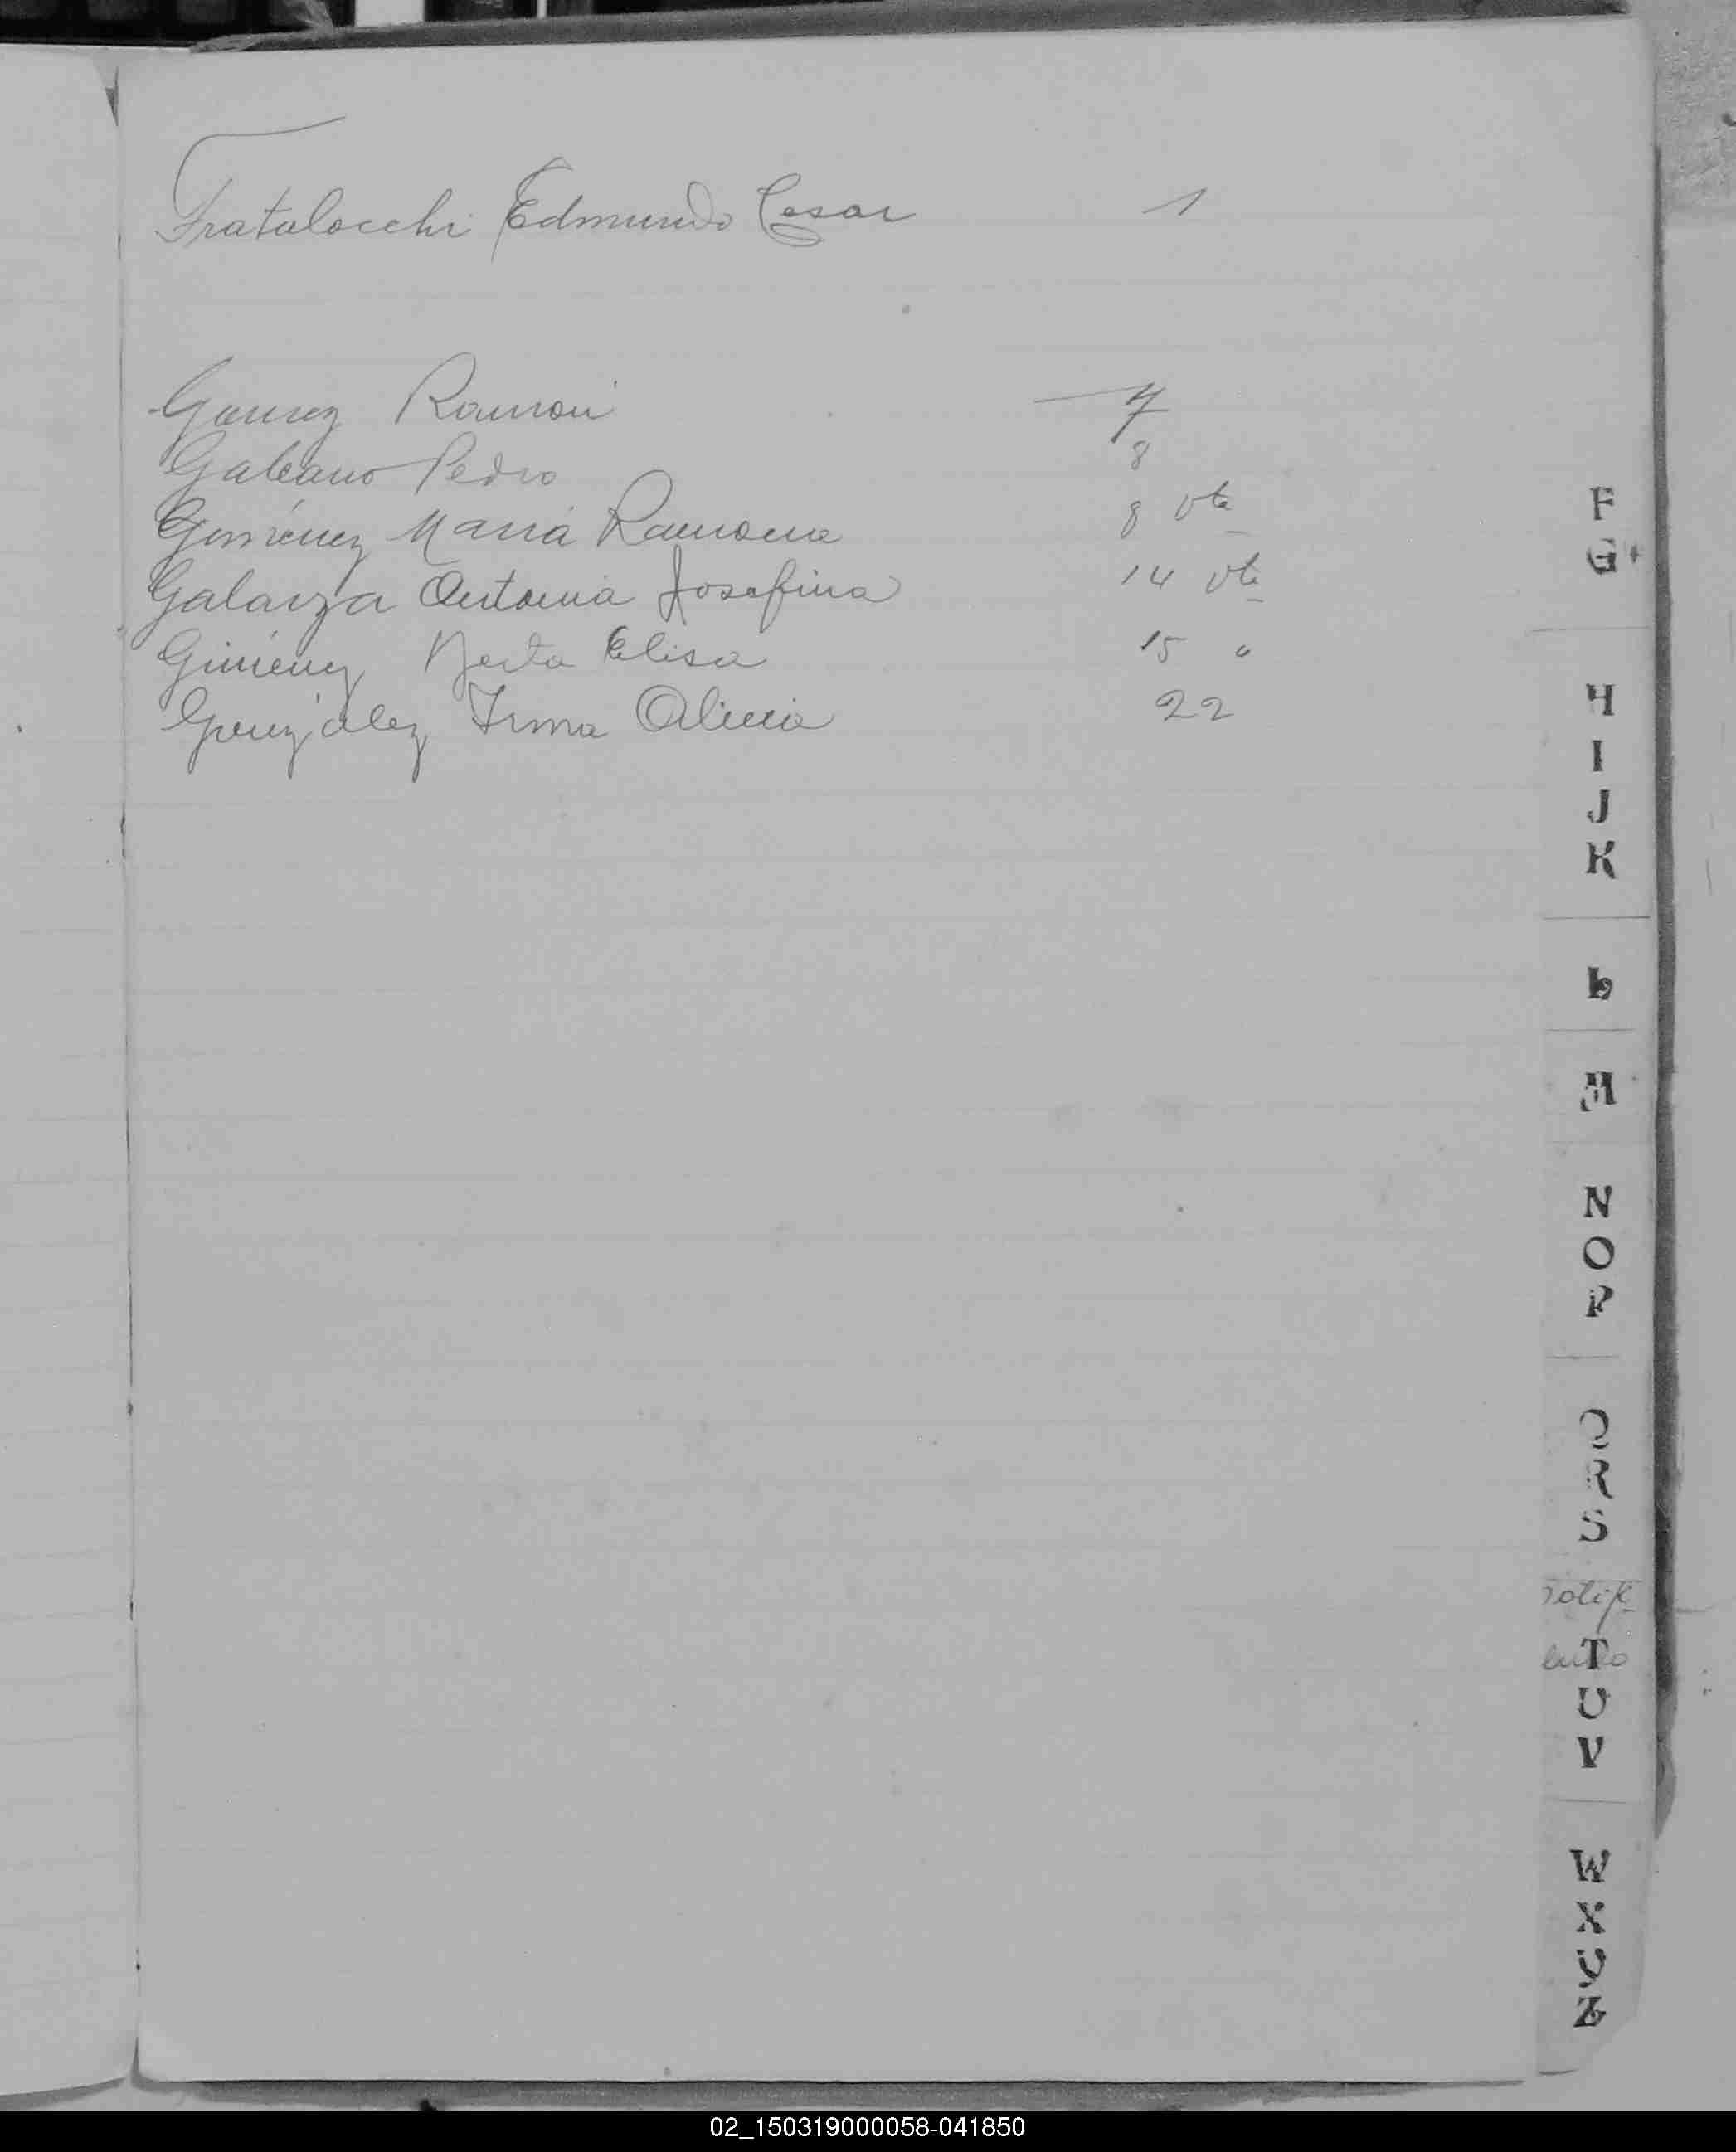 Fratalocchi Edmundo Cesar 1
Gomez Ramon 7
Galeano Pedro 8
Gimenez María Ramona 8 vta
Galarza Antonia Josefina 14 vta
Gimenez Berta Elisa 15 "
González Irma Alicia 22
F
G
H
I
J
K
L
M
N
O
P
Q
R
S
T
U
V
W
X
Y
Z
02_150319000058-041850